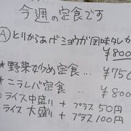 今週の定食です
Ⓐとりからあげ ミョウガ風味タレか
¥800
*野菜炒め定食… ¥750
*ニラレバ定食… ¥800
ライス中盛り + プラス50円
ライス大盛り + プラス100円